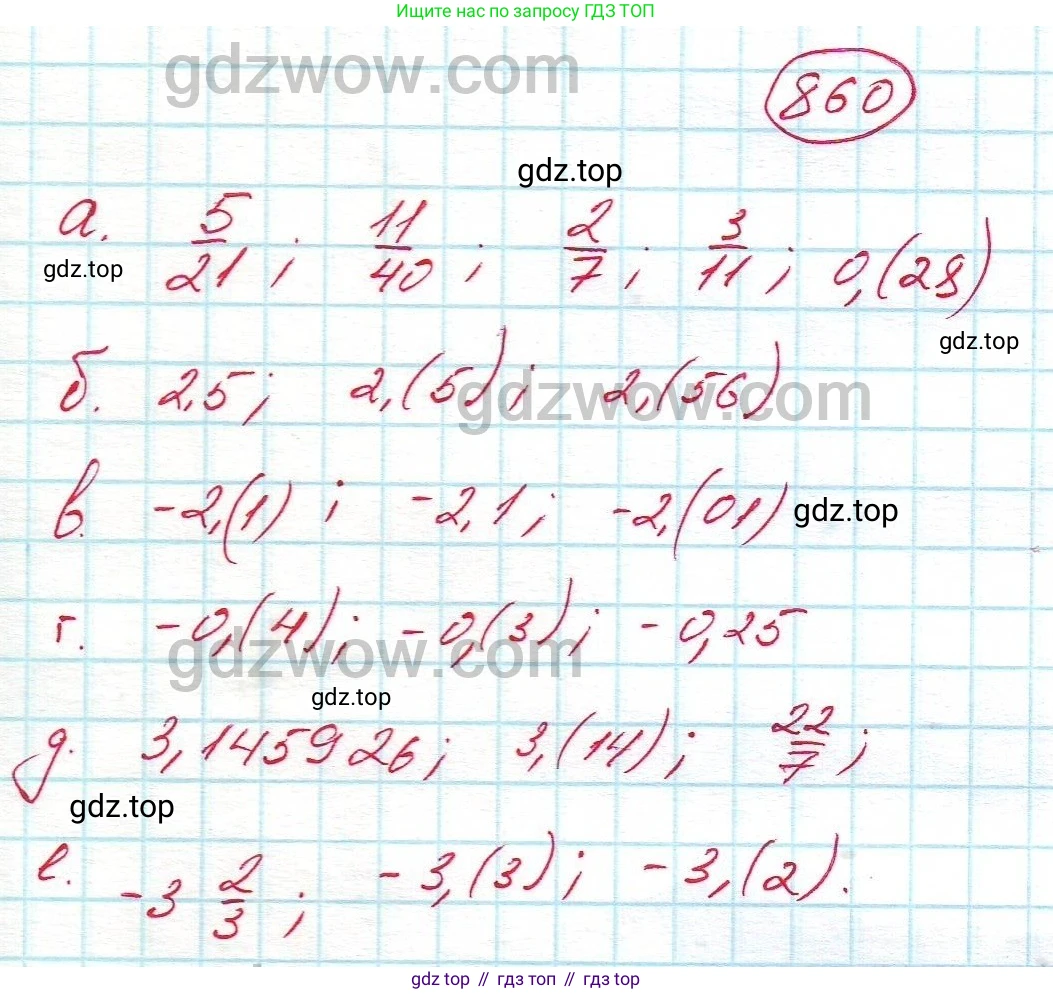 Ищите нас по запросу ГДЗ ТОП
gdzwow.com
860
gdz.top
а. 5/21; 11/40; 2/7; 3/11; 0,(28)
gdz.top
gdz.top
б. 2,5; 2,(5); 2,(56)
gdzwow.com
в. -2,(1); -2,1; -2,(01)
gdz.top
г. -0,(4); -0,(3); -0,25
gdzwow.com
gdz.top
д. 3,145926; 3,(14); 22/7;
gdz.top
е. -3 2/3; -3,(3); -3,(2).
gdz top // гдз топ // gdz top // гдз топ